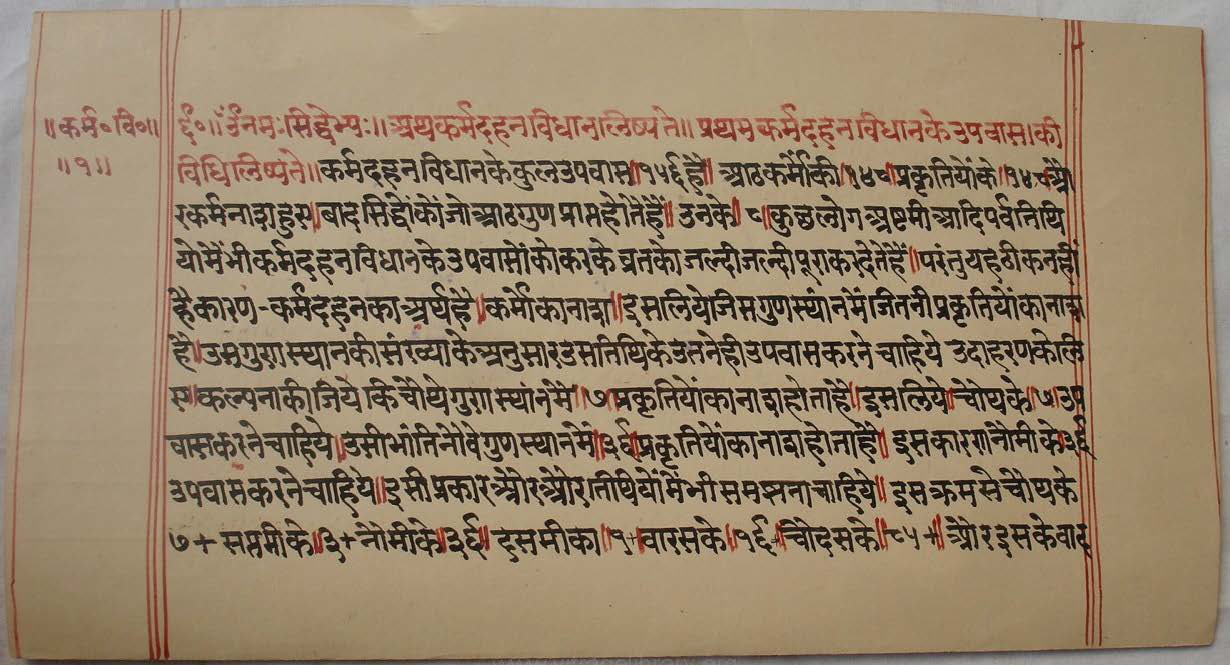 ॥कर्म॰वि॰॥
॥१॥
ई॰॥ॐनमःसिद्धेभ्यः॥अथकर्मदहनविधानलिष्यते॥प्रथमकर्मदहनविधानकेउपवासकी
विधिलिष्यते॥कर्मदहनविधानकेकुलउपवास॥१५६है॥आठकर्मोंकी॥१४८॥प्रकृतियोंके॥१४८॥औ
रकर्मनाशहुए॥बादसिद्धोंकोंजोआठगुणप्राप्तहोतेहैं॥उनके॥८॥कुछलोगअष्टमीआदिपर्वतिथि
योंमेंभीकर्मदहनविधानकेउपवासोंकोकरकेव्रतकोजल्दीजल्दीपूराकरदेतेहैं॥परंतुयहठीकनहीं
हैकारण-कर्मदहनकाअर्थहै॥कर्मोकानाश॥इसलियेजिसगुणस्थांनमेंजितनीप्रकृतियोंकानाश
है॥उसगुणस्थानकीसंख्याकेअनुसारउसतिथिकेउतनेहीउपवासकरनेचाहिये उदाहरणकेलि
ए॥कल्पनाकीजियेकिचौथेगुणस्थांनमें॥७॥प्रकृतियोंकानाशहोताहै॥इसलिये॥चौथके॥७॥उप
वासकरनेचाहिये॥उसीभांतिनौवेगुणस्थानमें॥३६॥प्रकृतियोंकानाशहोताहै॥इसकारणनौमीके॥३६
उपवासकरनेचाहिये॥इसीप्रकारऔरऔरतीथियोंमेंभीसमझनाचाहिये॥इसक्रमसेचौथके
७+सप्तमीके॥३+नौमीके॥३६॥दसमीका॥१+वारसके॥१६+चौदसके॥८५+॥औरइसकेवाद